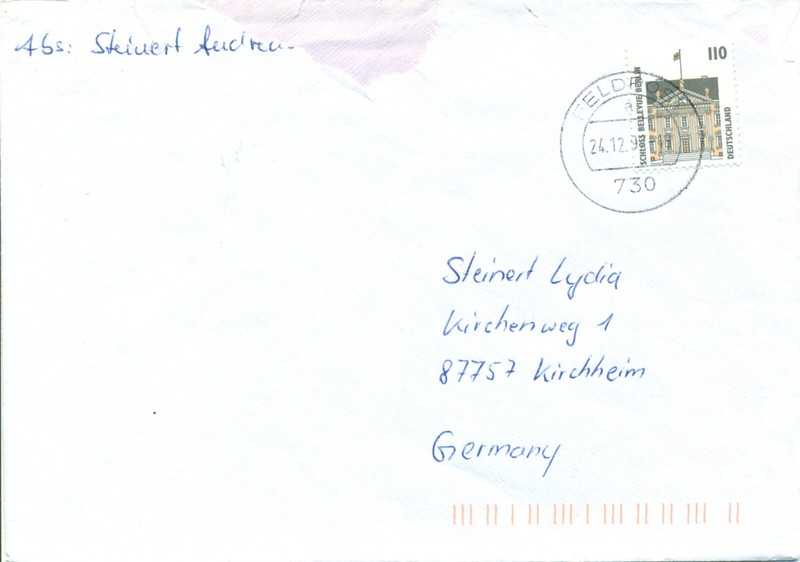 Abs: Steinert Andrea
110
SCHLOSS BELLEVUE BERLIN
DEUTSCHLAND
FELDPOST
24.12.9
730
Steinert Lydia
Kirchenweg 1
87757 Kirchheim
Germany